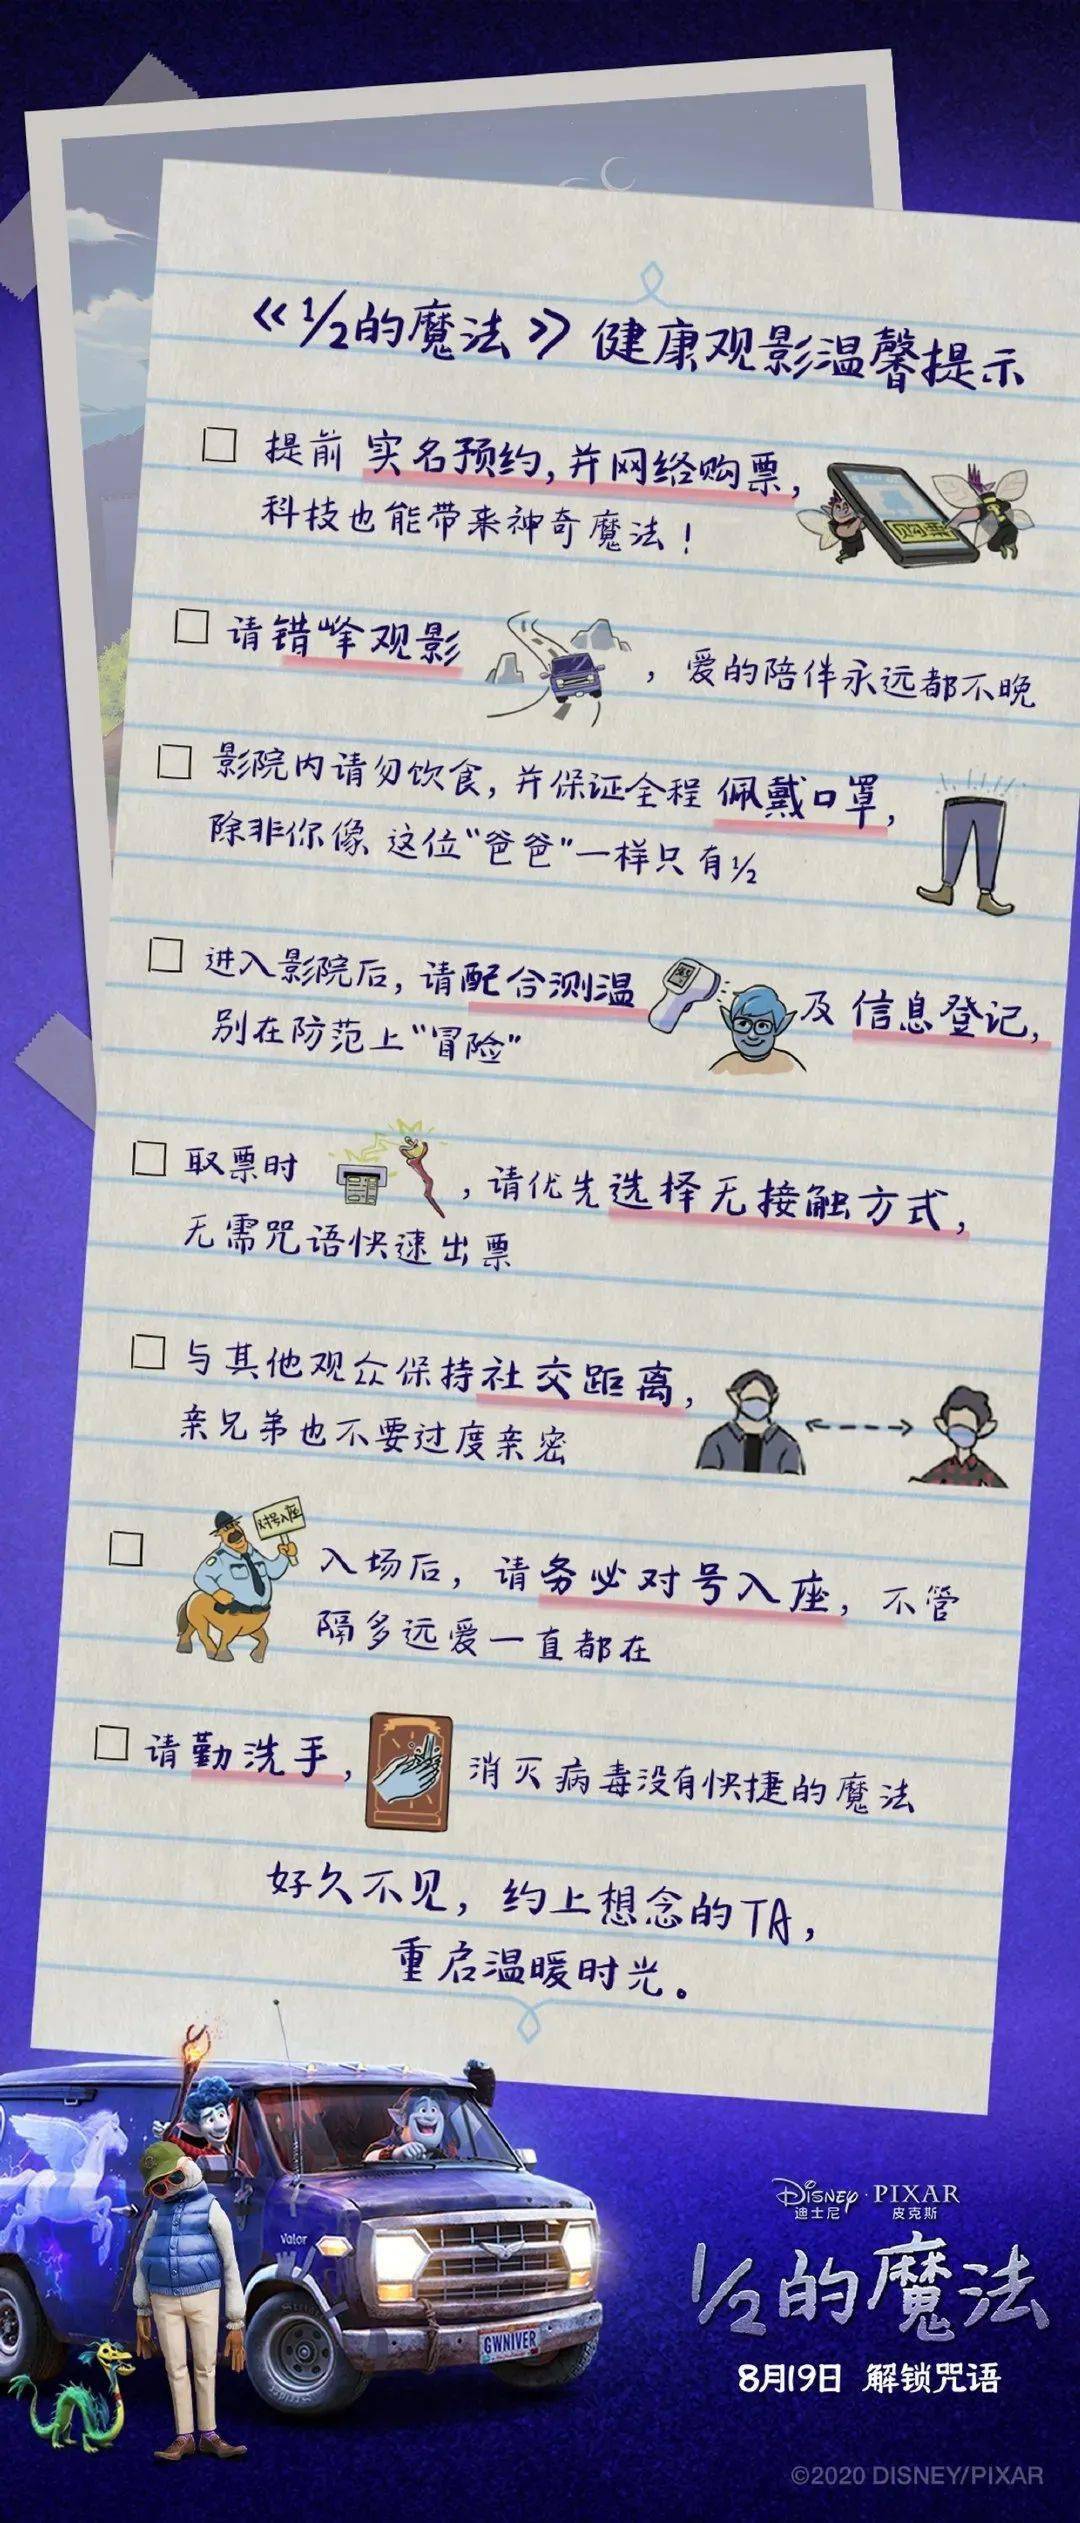 《1/2的魔法》健康观影温馨提示
提前 实名预约,并网络购票,
科技也能带来神奇魔法!
购票
请错峰观影 , 爱的陪伴永远都不晚
影院内请勿饮食, 并保证全程 佩戴口罩,
除非你像 这位“爸爸”一样只有1/2
进入影院后, 请配合测温 及 信息登记,
别在防范上“冒险”
取票时 , 请优先选择无接触方式,
无需咒语快速出票
与其他观众保持社交距离,
亲兄弟也不要过度亲密
对号入座
入场后, 请务必对号入座, 不管
隔多远爱一直都在
请勤洗手, 消灭病毒没有快捷的魔法
好久不见, 约上想念的TA,
重启温暖时光。
Valor
GWNIVER
Disney · PIXAR
迪士尼 皮克斯
1/2的魔法
8月19日 解锁咒语
©2020 DISNEY/PIXAR